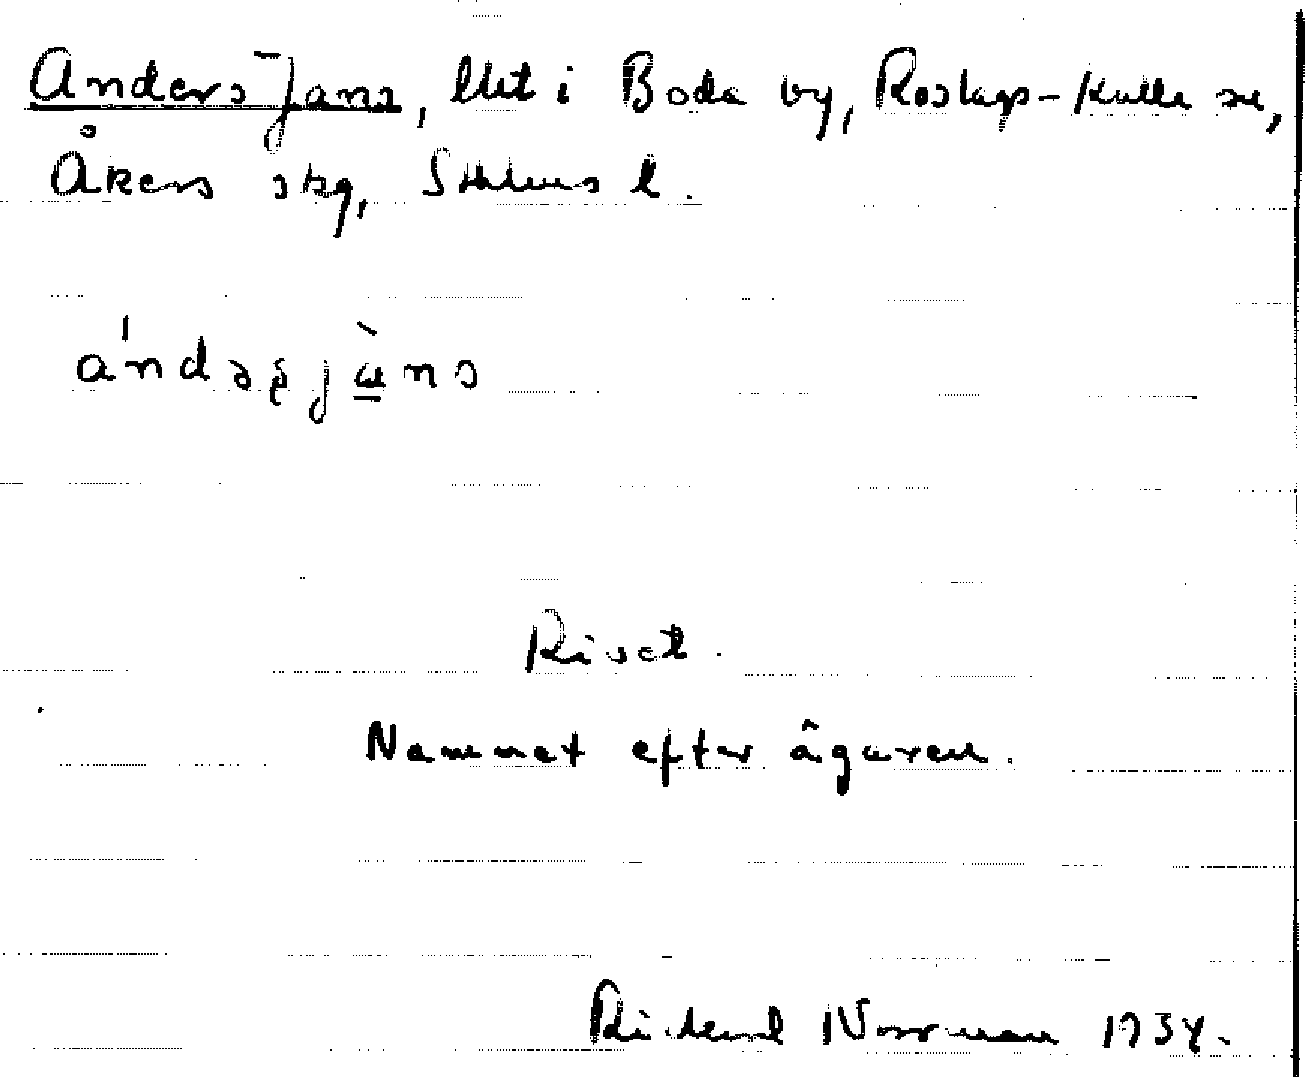 Anders Jans, lht i Boda by, Roslags-Kulla sn,
Åkers skg, Sthlms l.
ándəʂjὰns
Rivet.
Namnet efter ägaren.
Rickard Norrman 1934.